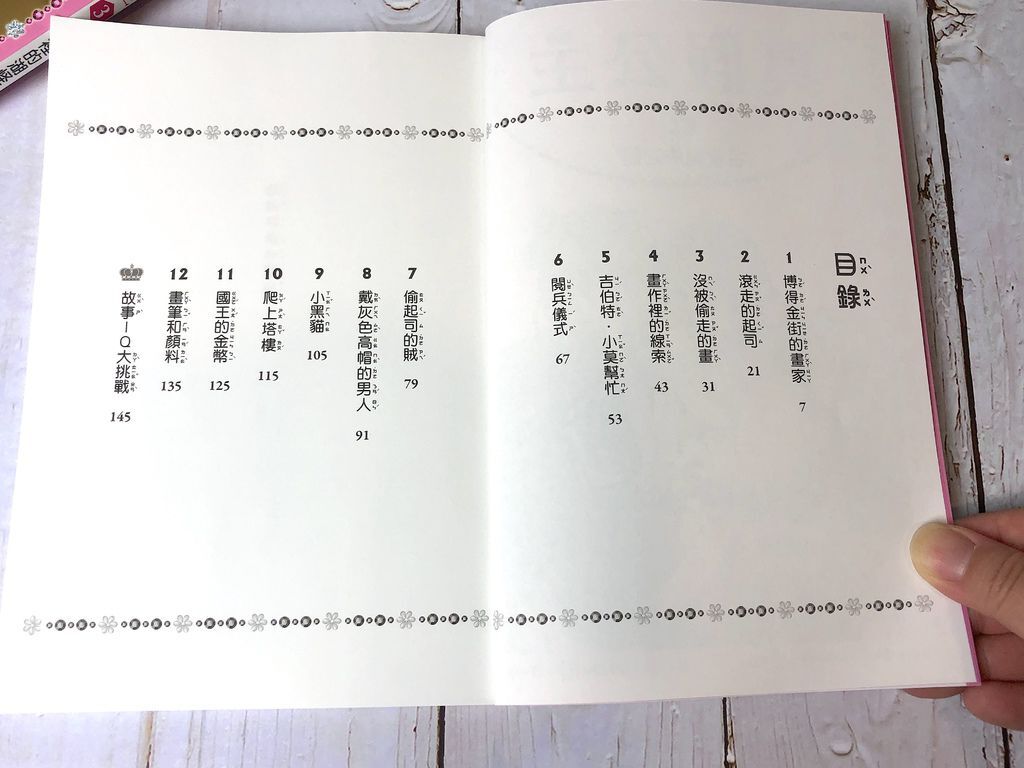 目錄
1 博得金街的畫家 7
2 滾走的起司 21
3 沒被偷走的畫 31
4 畫作裡的線索 43
5 吉伯特·小莫幫忙 53
6 閱兵儀式 67
7 偷起司的賊 79
8 戴灰色高帽的男人 91
9 小黑貓 105
10 爬上塔樓 115
11 國王的金幣 125
12 畫筆和顏料 135
故事IQ大挑戰 145
3